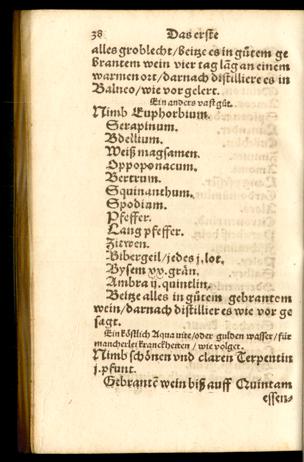 38 Das erste
alles groblecht/Beitze es in gůtem ge
brantem wein vier tag lãg an einem
warmen ort/darnach distilliere es in
Balneo/wie vor gelert.
Ein anders vast gůt.
Nimb Euphorbium.
Serapinum.
Bdellium.
Weiß magsamen.
Oppoponacum.
Bertrum.
Squinanthum.
Spodium.
Pfeffer.
Lang pfeffer.
Zitwen.
Bibergeil/jedes j. lot.
Bysem xx. grãn.
Ambra ij. quintlin.
Beitze alles in gůtem gebrantem
wein/darnach distillier es wie vor ge
sagt.
Ein köstlich Aqua vite/oder gulden wasser/für
mancherlei kranckheiten/wie volget.
Nimb schönen vnd claren Terpentin
j. pfunt.
Gebrantẽ wein biß auff Quintam
essen-